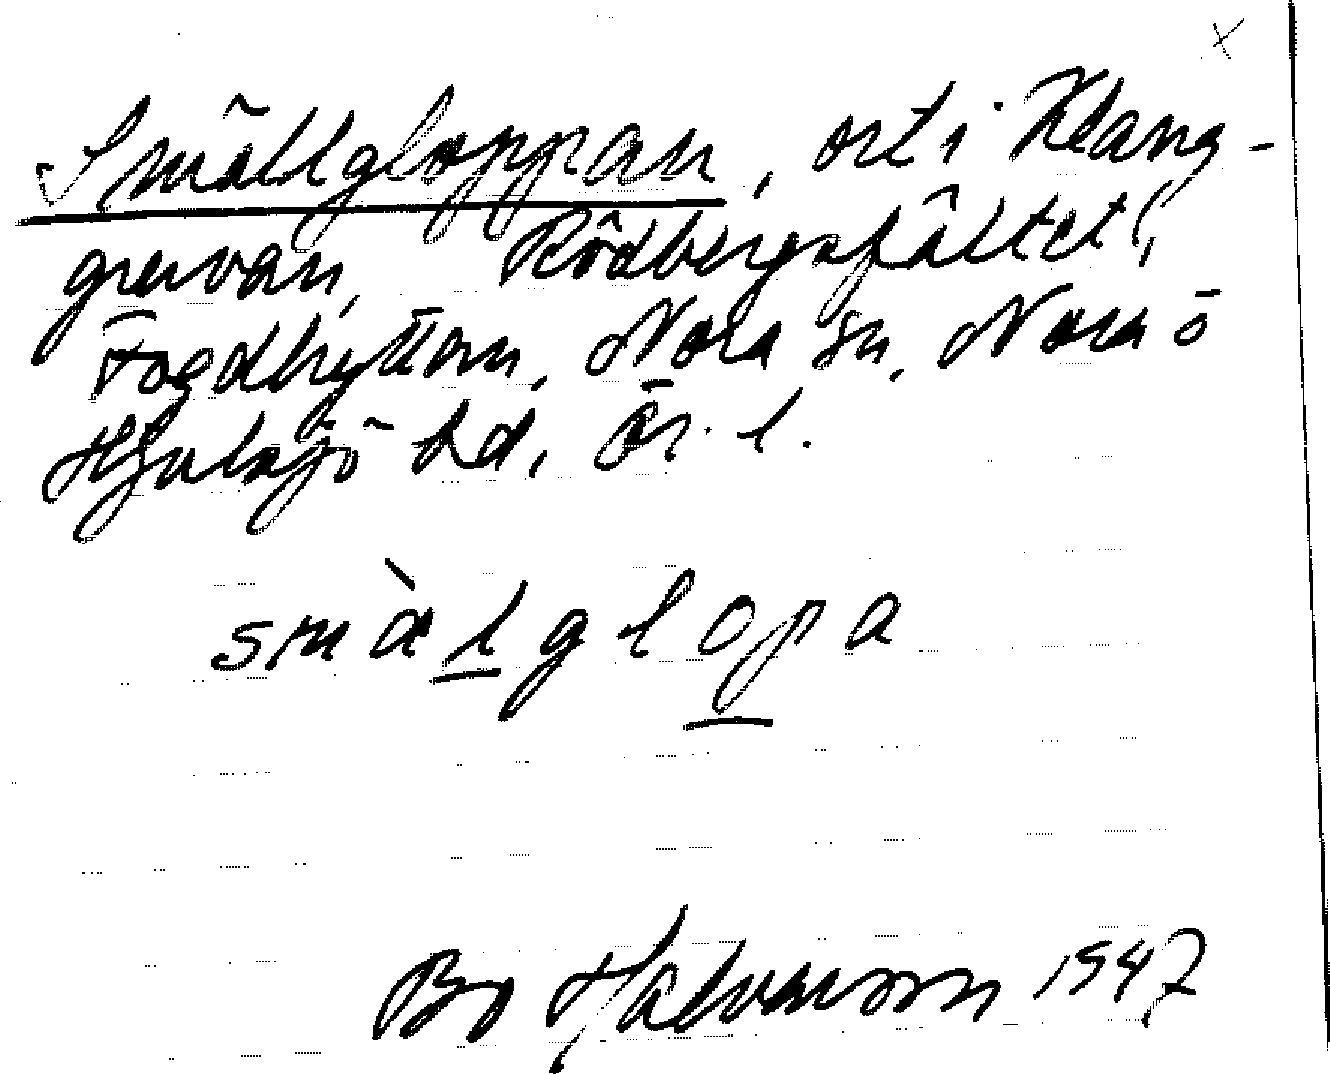 Smällgloppan, ort i Klang-
gruvan, Rödbergsfältet,
Fogdhyttan, Nora sn, Nora o
Hjulsjö bd, Ör. l.
smàlglopa
Bo Halvarson 1947